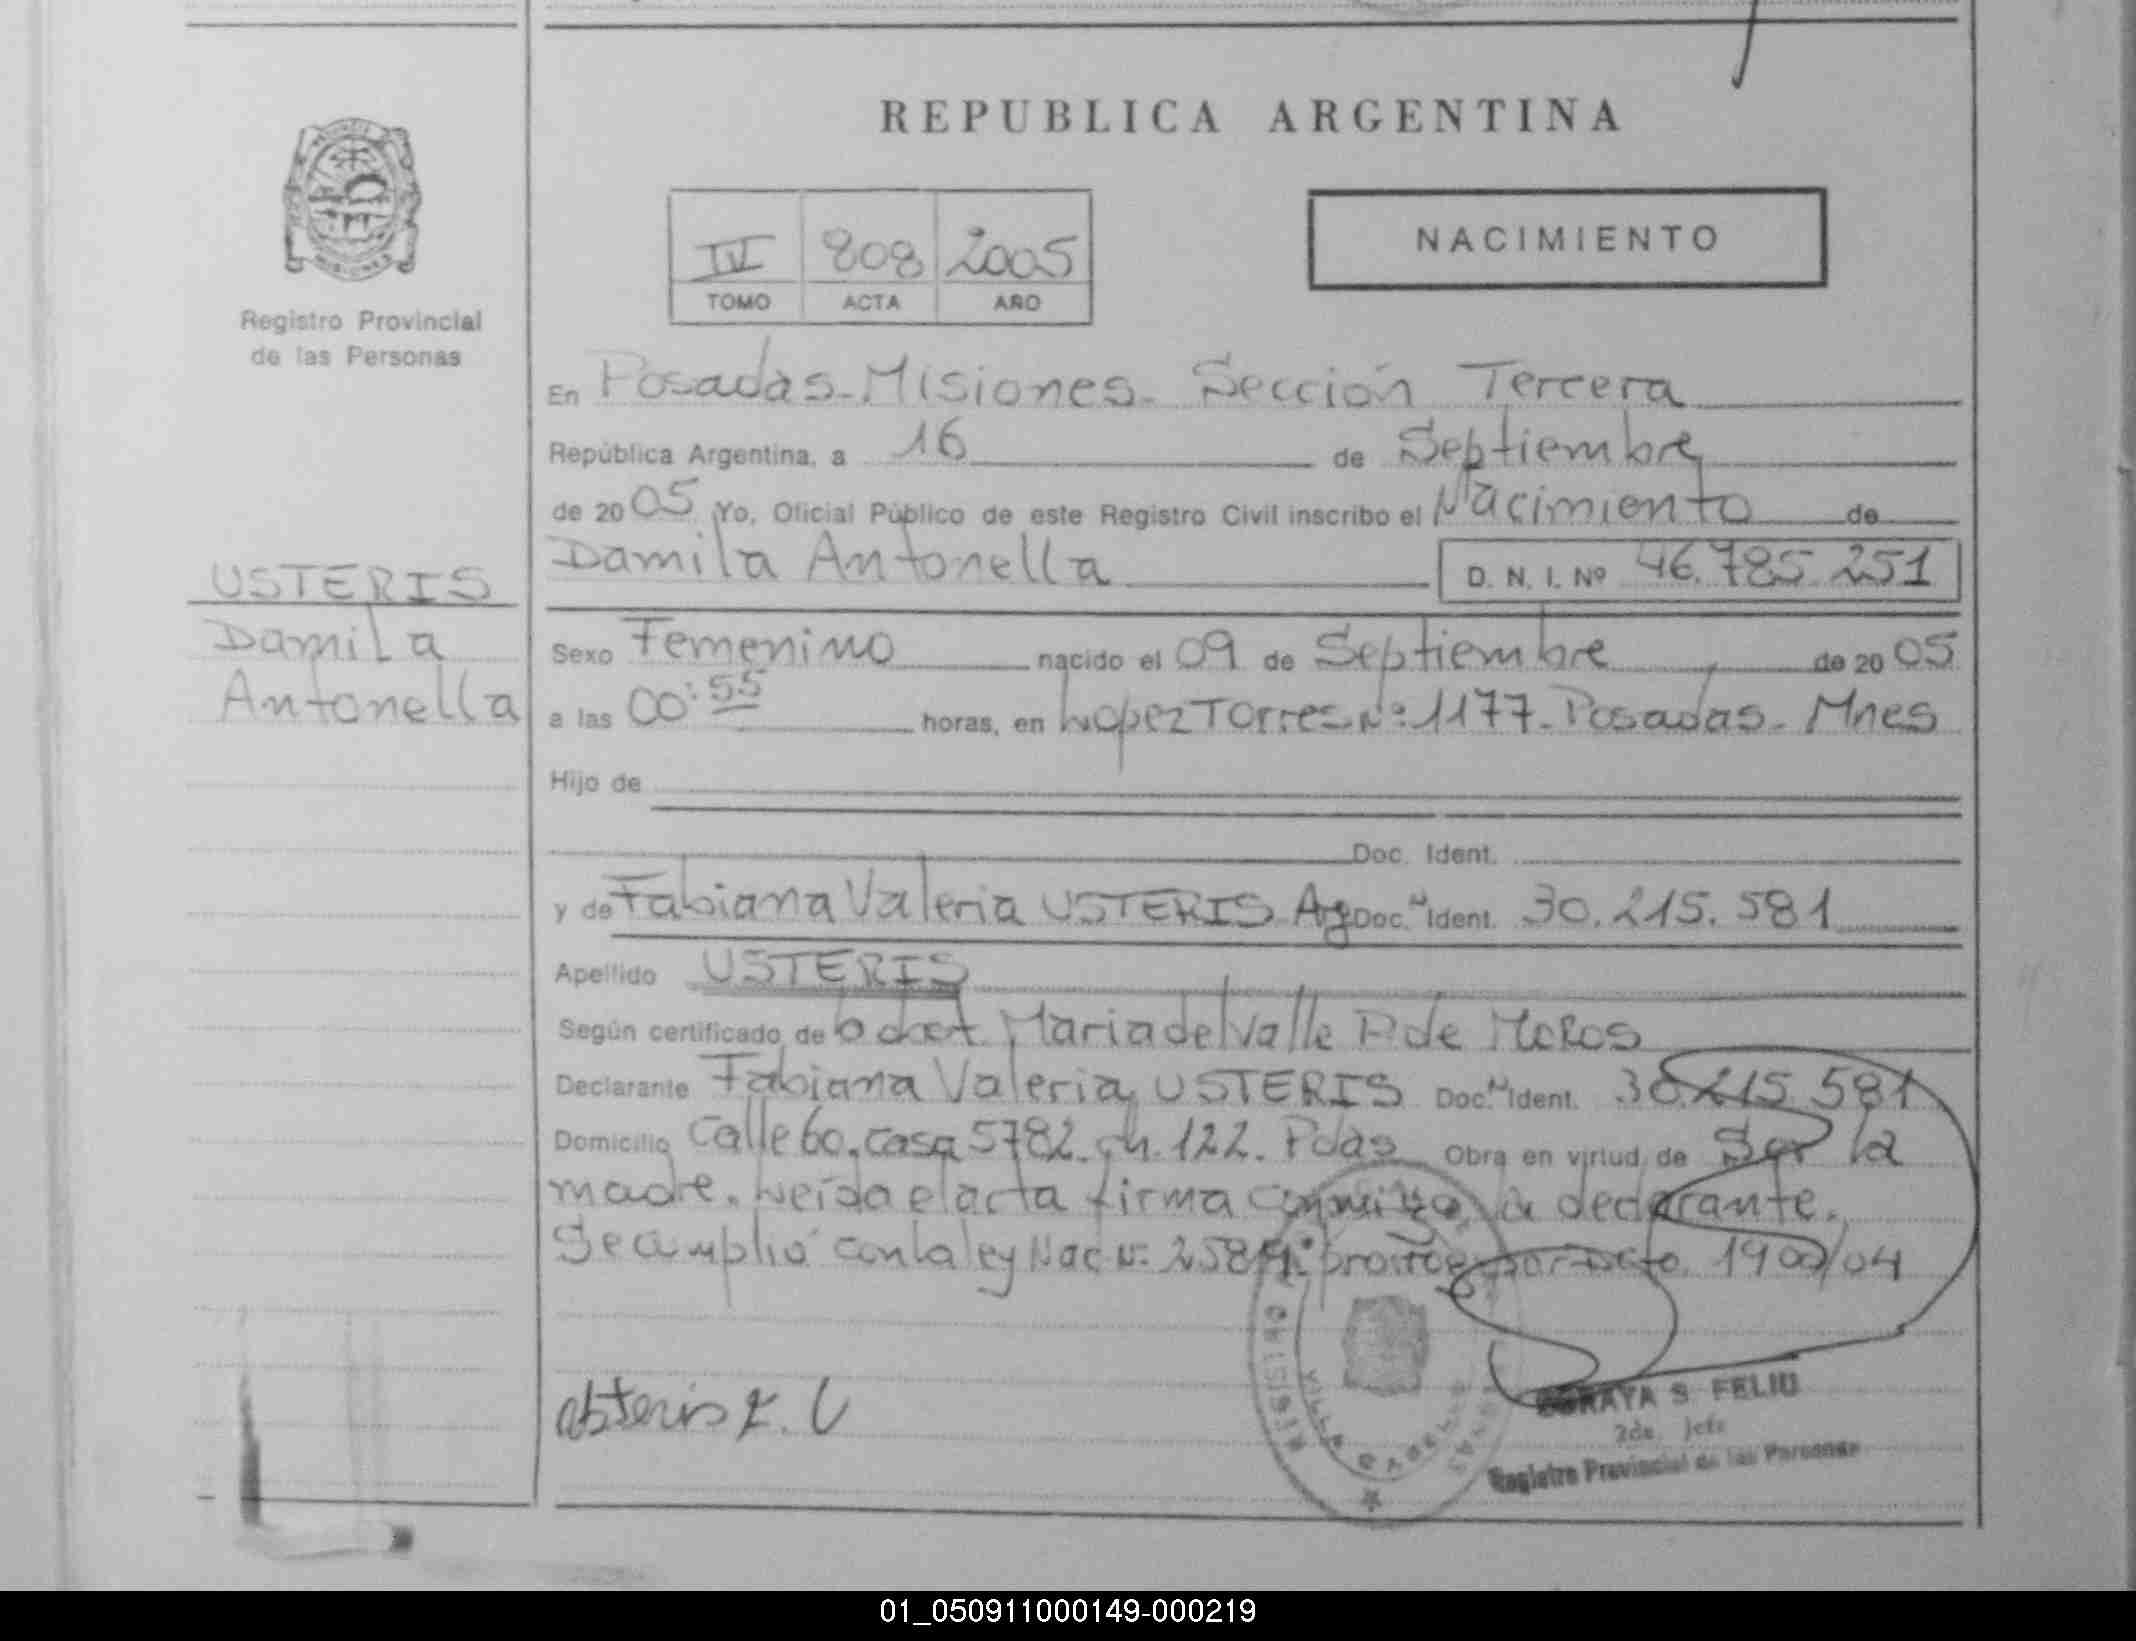 REPUBLICA ARGENTINA
NACIMIENTO
IV 808 2005
TOMO ACTA AÑO
Registro Provincial
de las Personas
USTERIS
Damila
Antonella
En Posadas-Misiones- Sección Tercera
República Argentina, a 16 de Septiembre
de 2005 Yo, Oficial Público de este Registro Civil inscribo el Nacimiento de
Damila Antonella D. N. I. Nº 46.785.251
Sexo Femenino nacido el 09 de Septiembre de 2005
a las 00:55 horas, en Lopez Torres Nº:1177-Posadas-Mnes
Hijo de
Doc. Ident.
y de Fabiana Valeria USTERIS Arg Doc. Ident. 30.215.581
Apellido USTERIS
Según certificado de Maria del Valle P. de
Declarante Fabiana Valeria USTERIS Doc. Ident. 30.215.581
Domicilio Calle 60. casa 5782. ch. 122. Pdas Obra en virtud de Ser la
madre. Leída el acta firma conmigo la declarante.
Se cumplió con la ley Nac Nº por Dcto. 1900/04
usteris F. V
SORAYA S. FELIU
2da. Jefe
Registro Provincial de las Personas
01_050911000149-000219